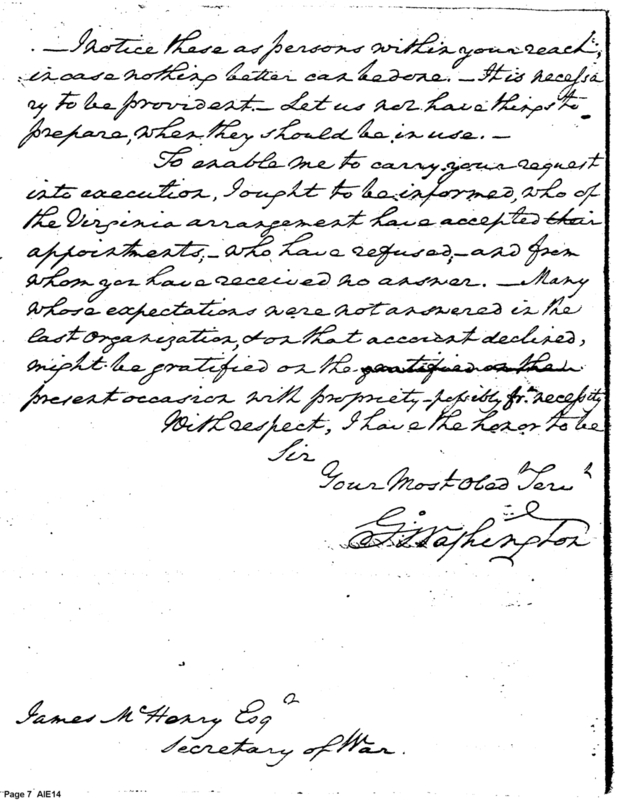 . — I notice these as persons within your reach,
in case nothing better can be done. — It is necessa
ry to be provident. — Let us not have things to
prepare, when they should be in use. —
To enable me to carry your request
into execution, I ought to be informed, who of
the Virginia arrangement have accepted their
appointments, — who have refused, — and from
whom you have received no answer. — Many
whose expectations were not answered in the
last Organization, & on that account declined,
might be gratified on the gratified on the
present occasion with propriety — possibly frm. necessity
With respect, I have the honor to be
Sir
Your Most Obedt Servt
Go: Washington
James McHenry Esqr
Secretary of War.
Page 7 AIE14